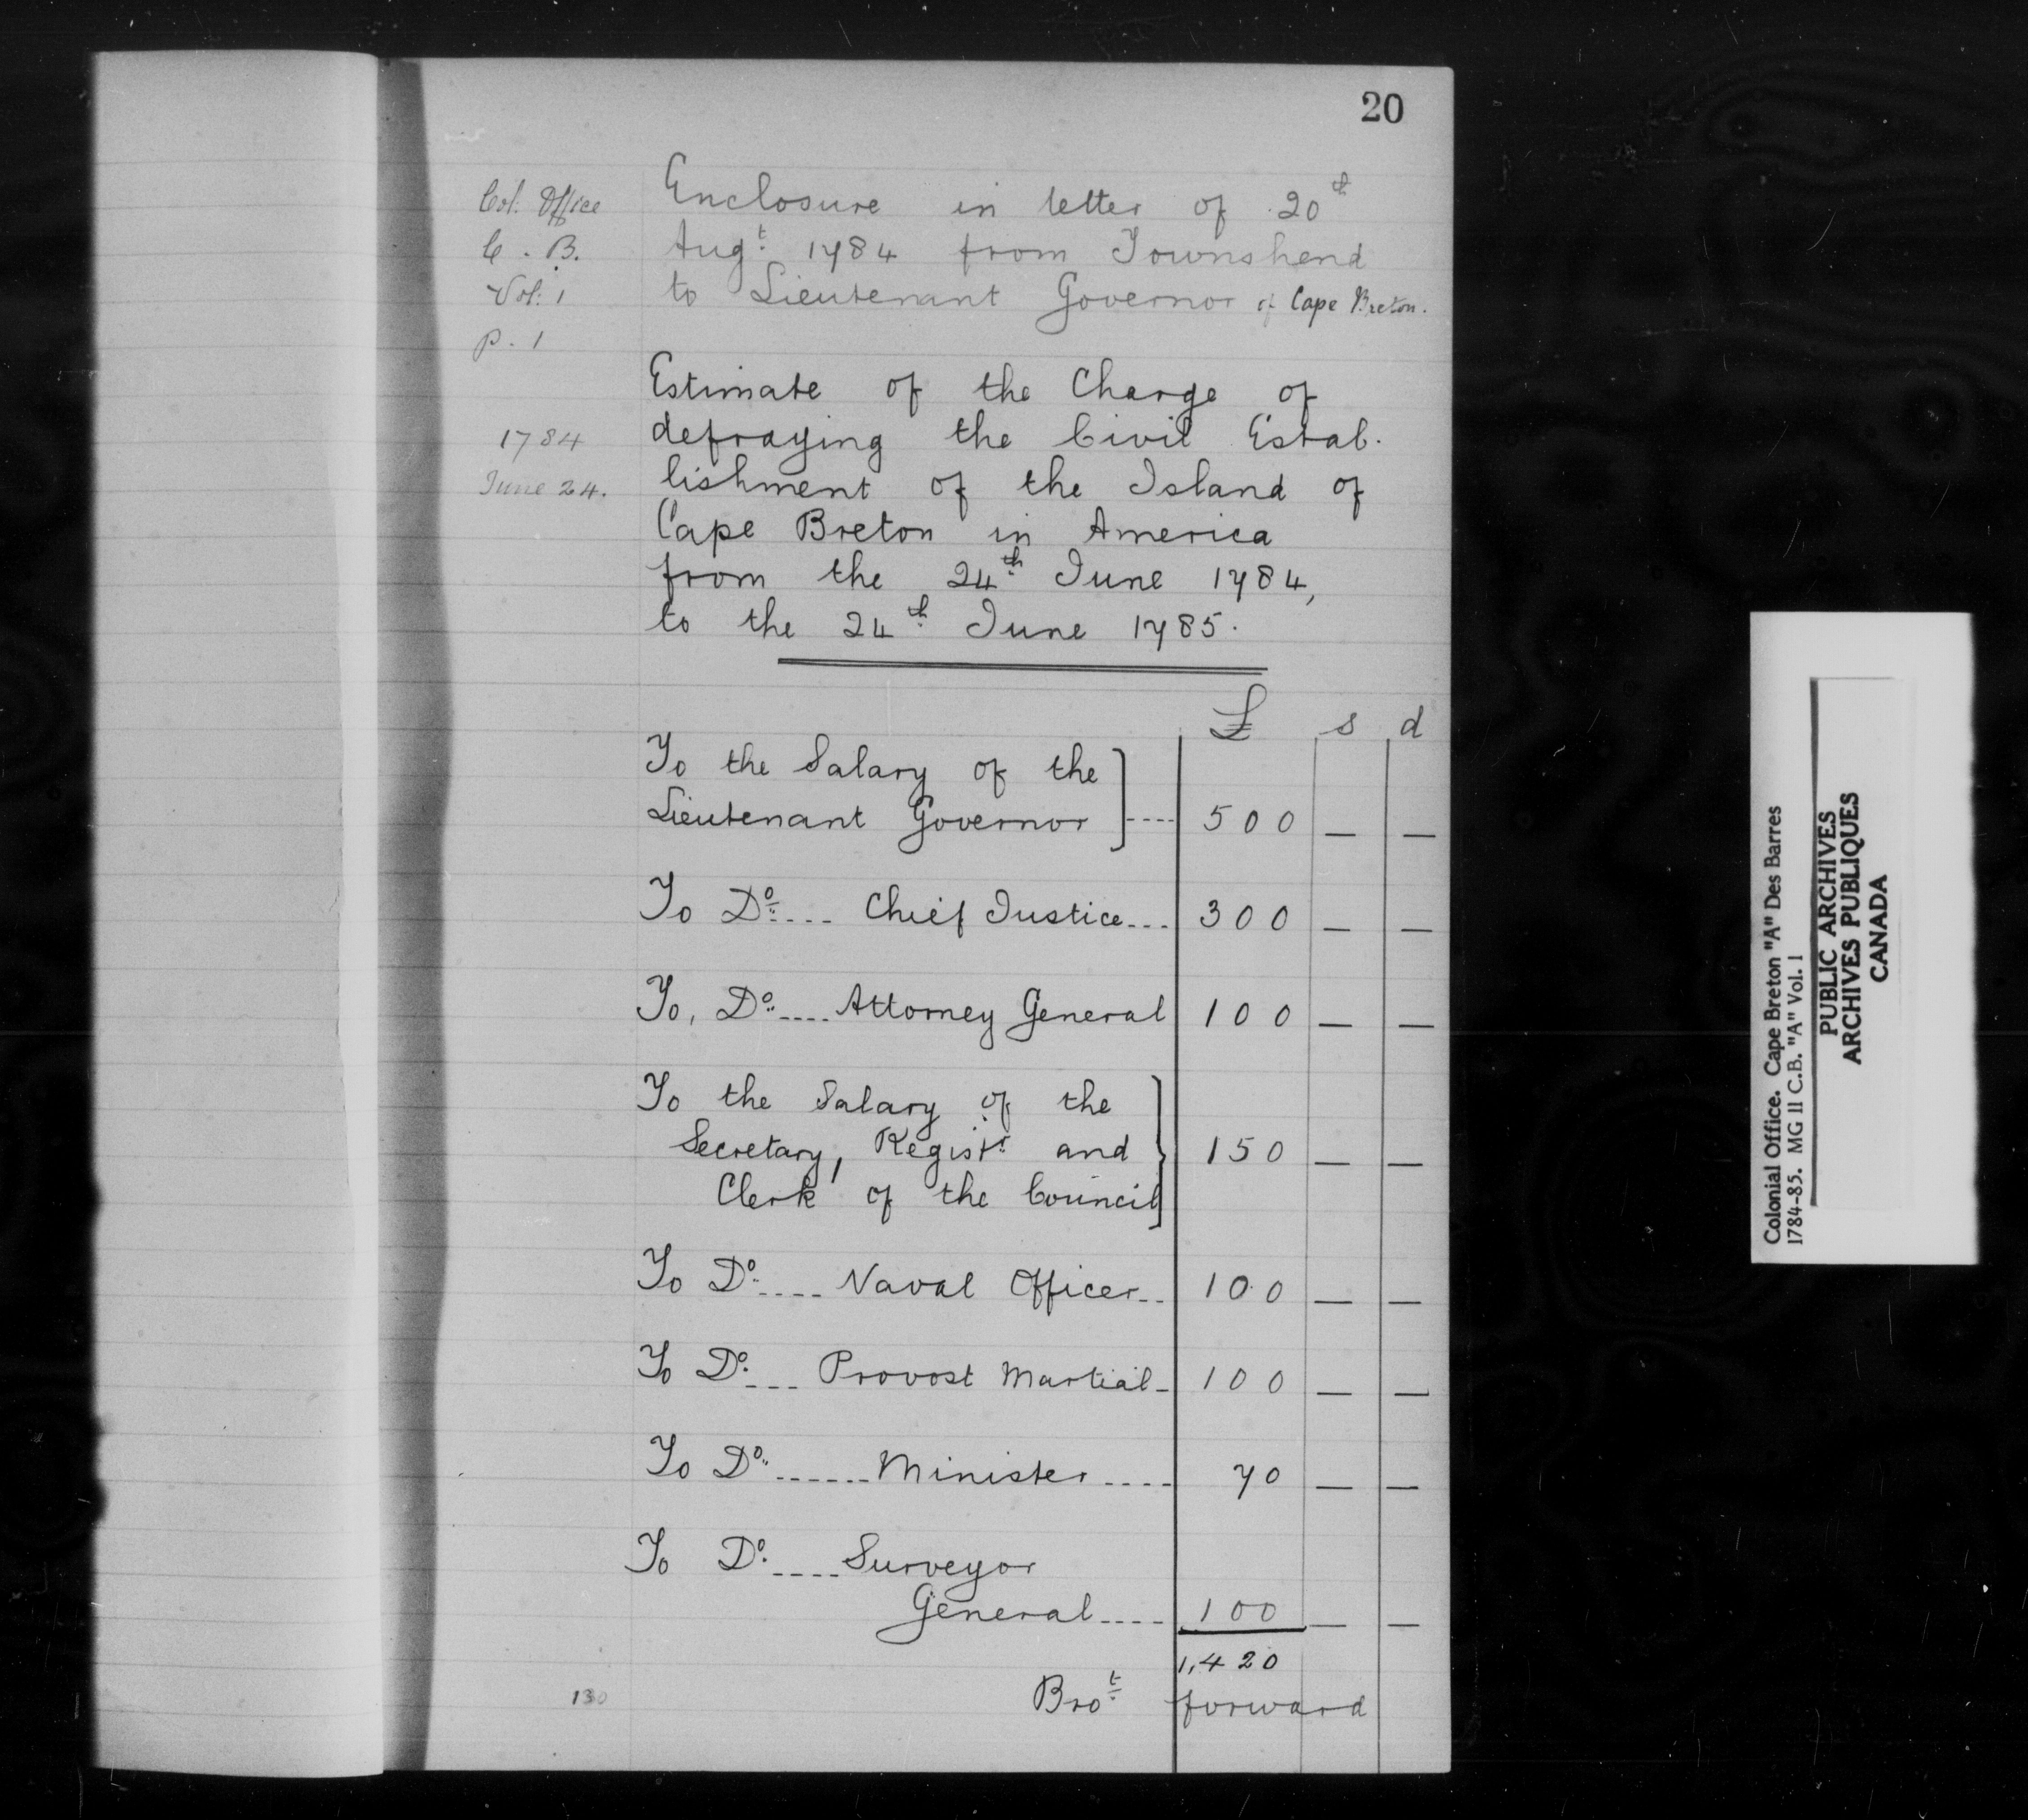 20
Col. Office
C. B.
Vol: 1
p. 1
Enclosure in letter of 20th
Augt 1784 from Townshend
to Lieutenant Governor of Cape Breton.
1784
June 24.
Estimate of the Charge of
defraying the Civil Estab-
lishment of the Island of
Cape Breton in America
from the 24th June 1784,
to the 24th June 1785.
£ s d
To the Salary of the
Lieutenant Governor } ---- 500 — —
To Do .... Chief Justice ... 300 — —
To, Do .... Attorney General 100 — —
To the Salary of the
Secretary, Registr and } 150 — —
Clerk of the Council
To Do .... Naval Officer .. 100 — —
To Do ... Provost Martial - 100 — —
To Do ...... Minister .... 70 — —
To Do .... Surveyor
General .... 100 — —
1,420
Brot forward
130
Colonial Office. Cape Breton "A" Des Barres
1784-85. MG 11 C.B. "A" Vol. 1
PUBLIC ARCHIVES
ARCHIVES PUBLIQUES
CANADA